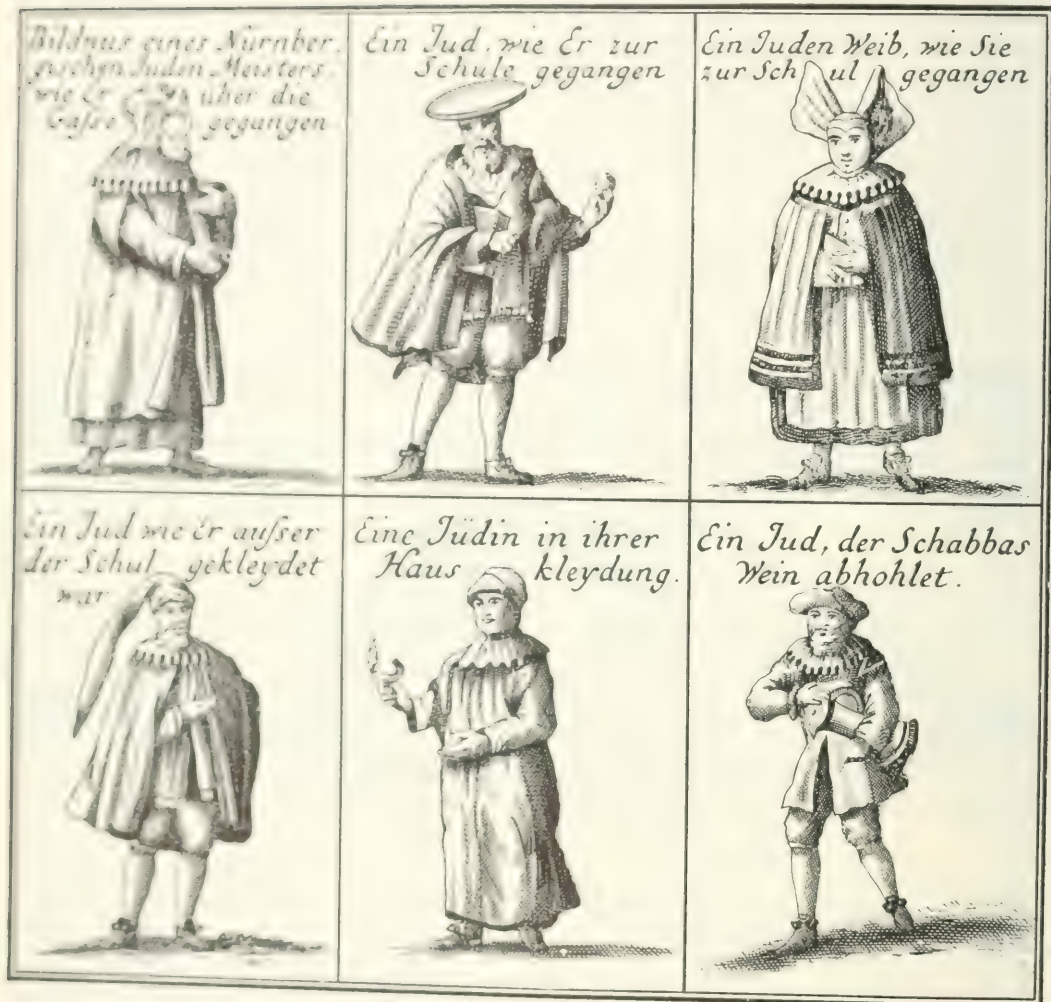 Bildnus eines Nürnber,
gischen Juden Meisters,
wie Er über die
Gasse gegangen
Ein Jud, wie Er zur
Schule gegangen
Ein Juden Weib, wie Sie
zur Schul gegangen
Ein Jud wie Er ausser
der Schul gekleydet
war
Eine Jüdin in ihrer
Haus kleydung.
Ein Jud, der Schabbas
Wein abhohlet.